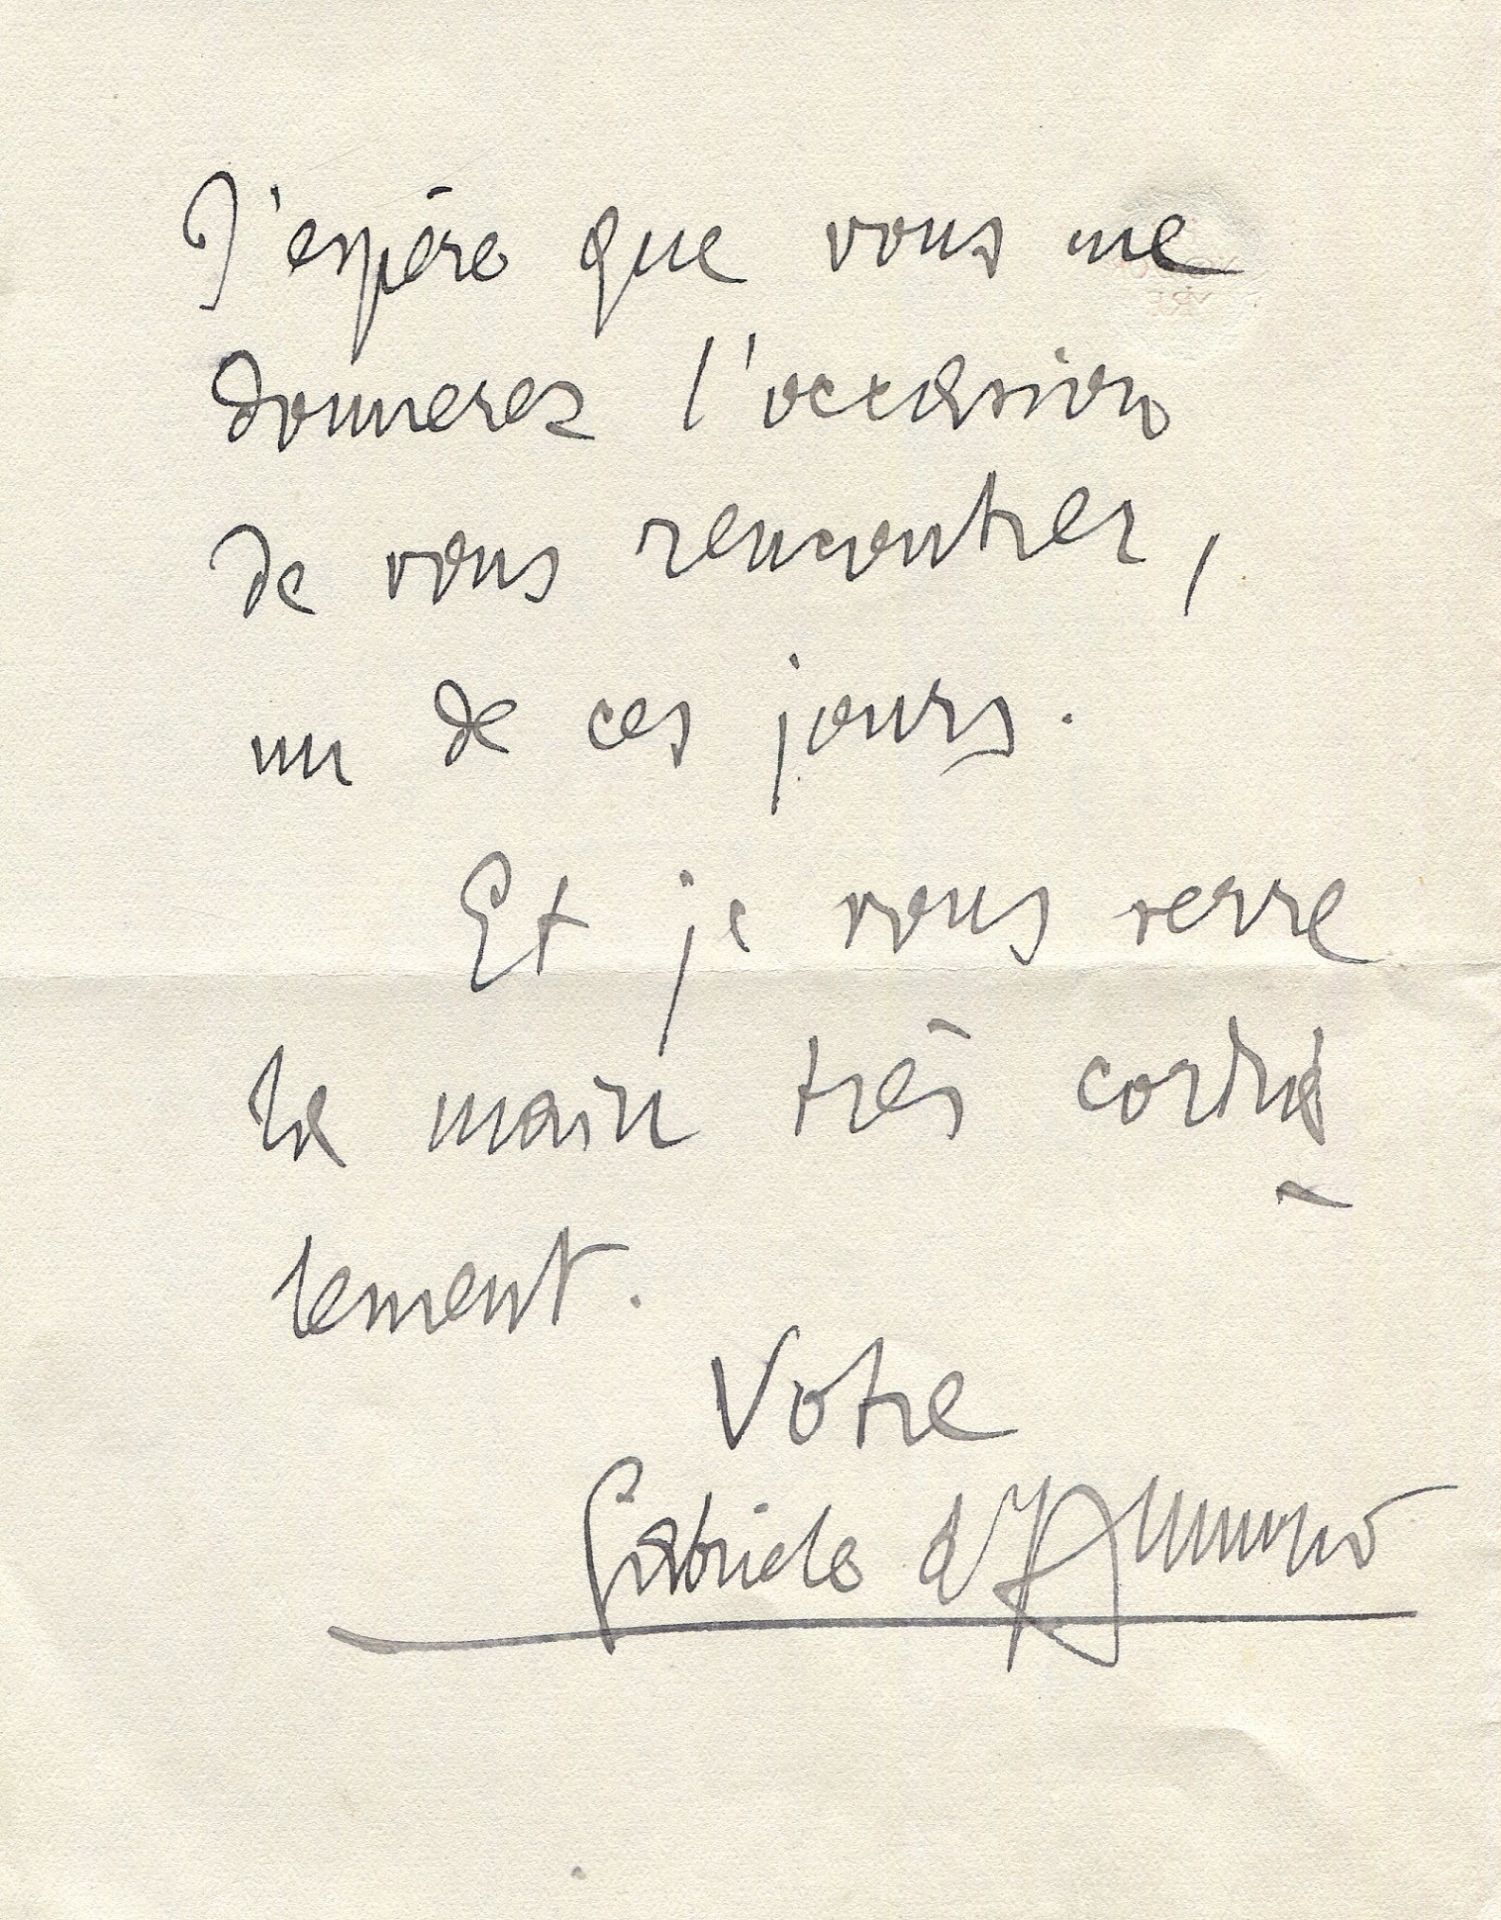 J'espère que vous me
donnerez l'occasion
de vous rencontrer,
un de ces jours.
Et je vous serre
la main très cordia-
lement.
Votre
Gabriele d'Annunzio